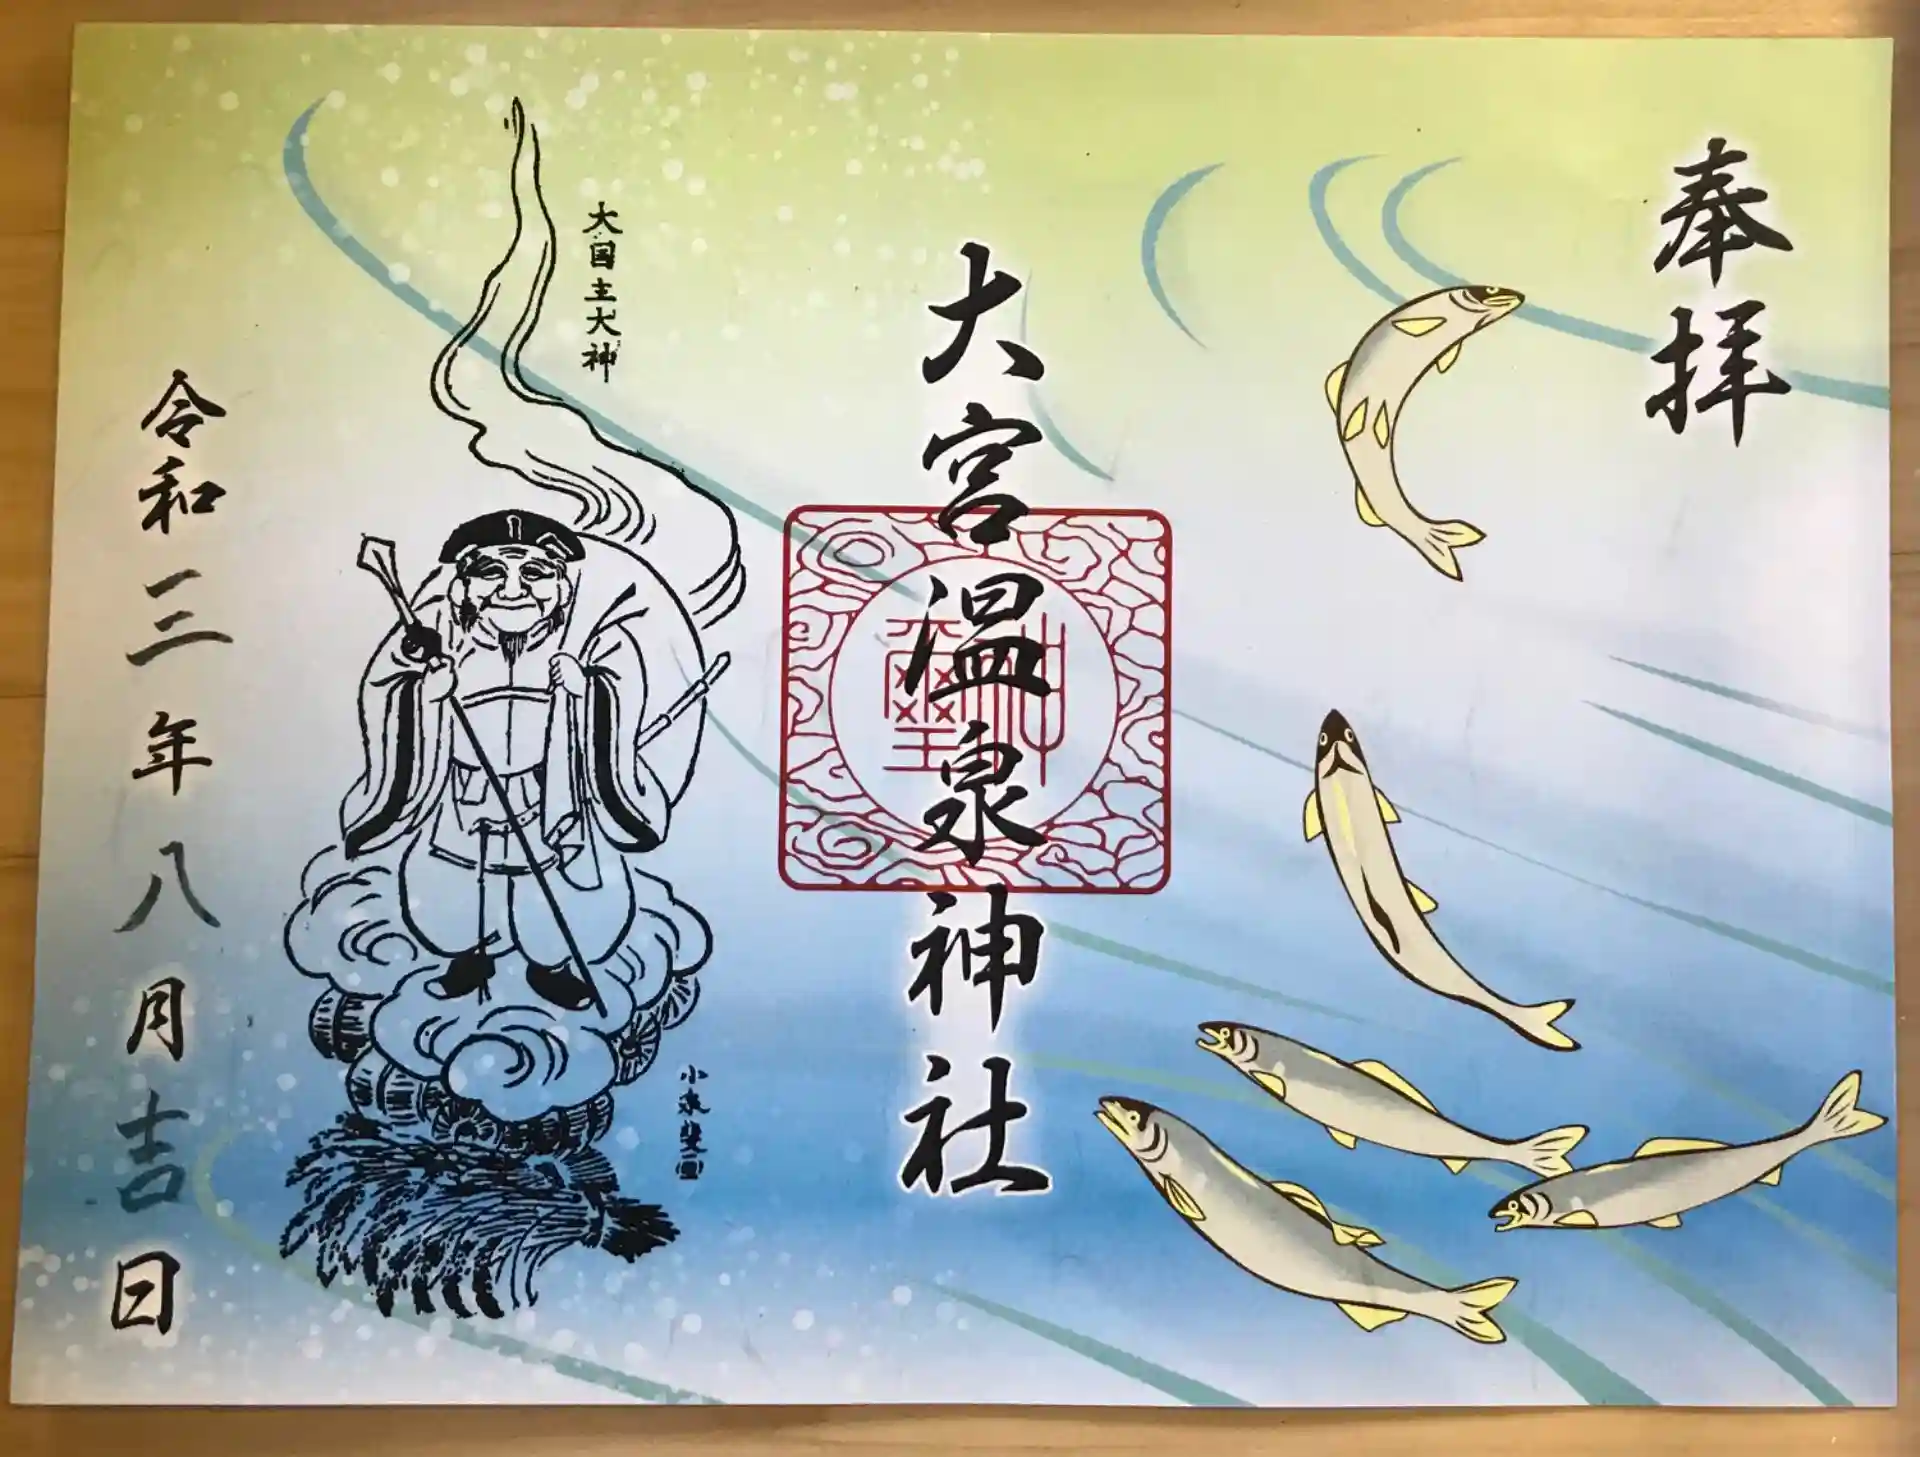 奉拝
大宮温泉神社
神璽
大国主大神
小泉斐画
令和三年八月吉日